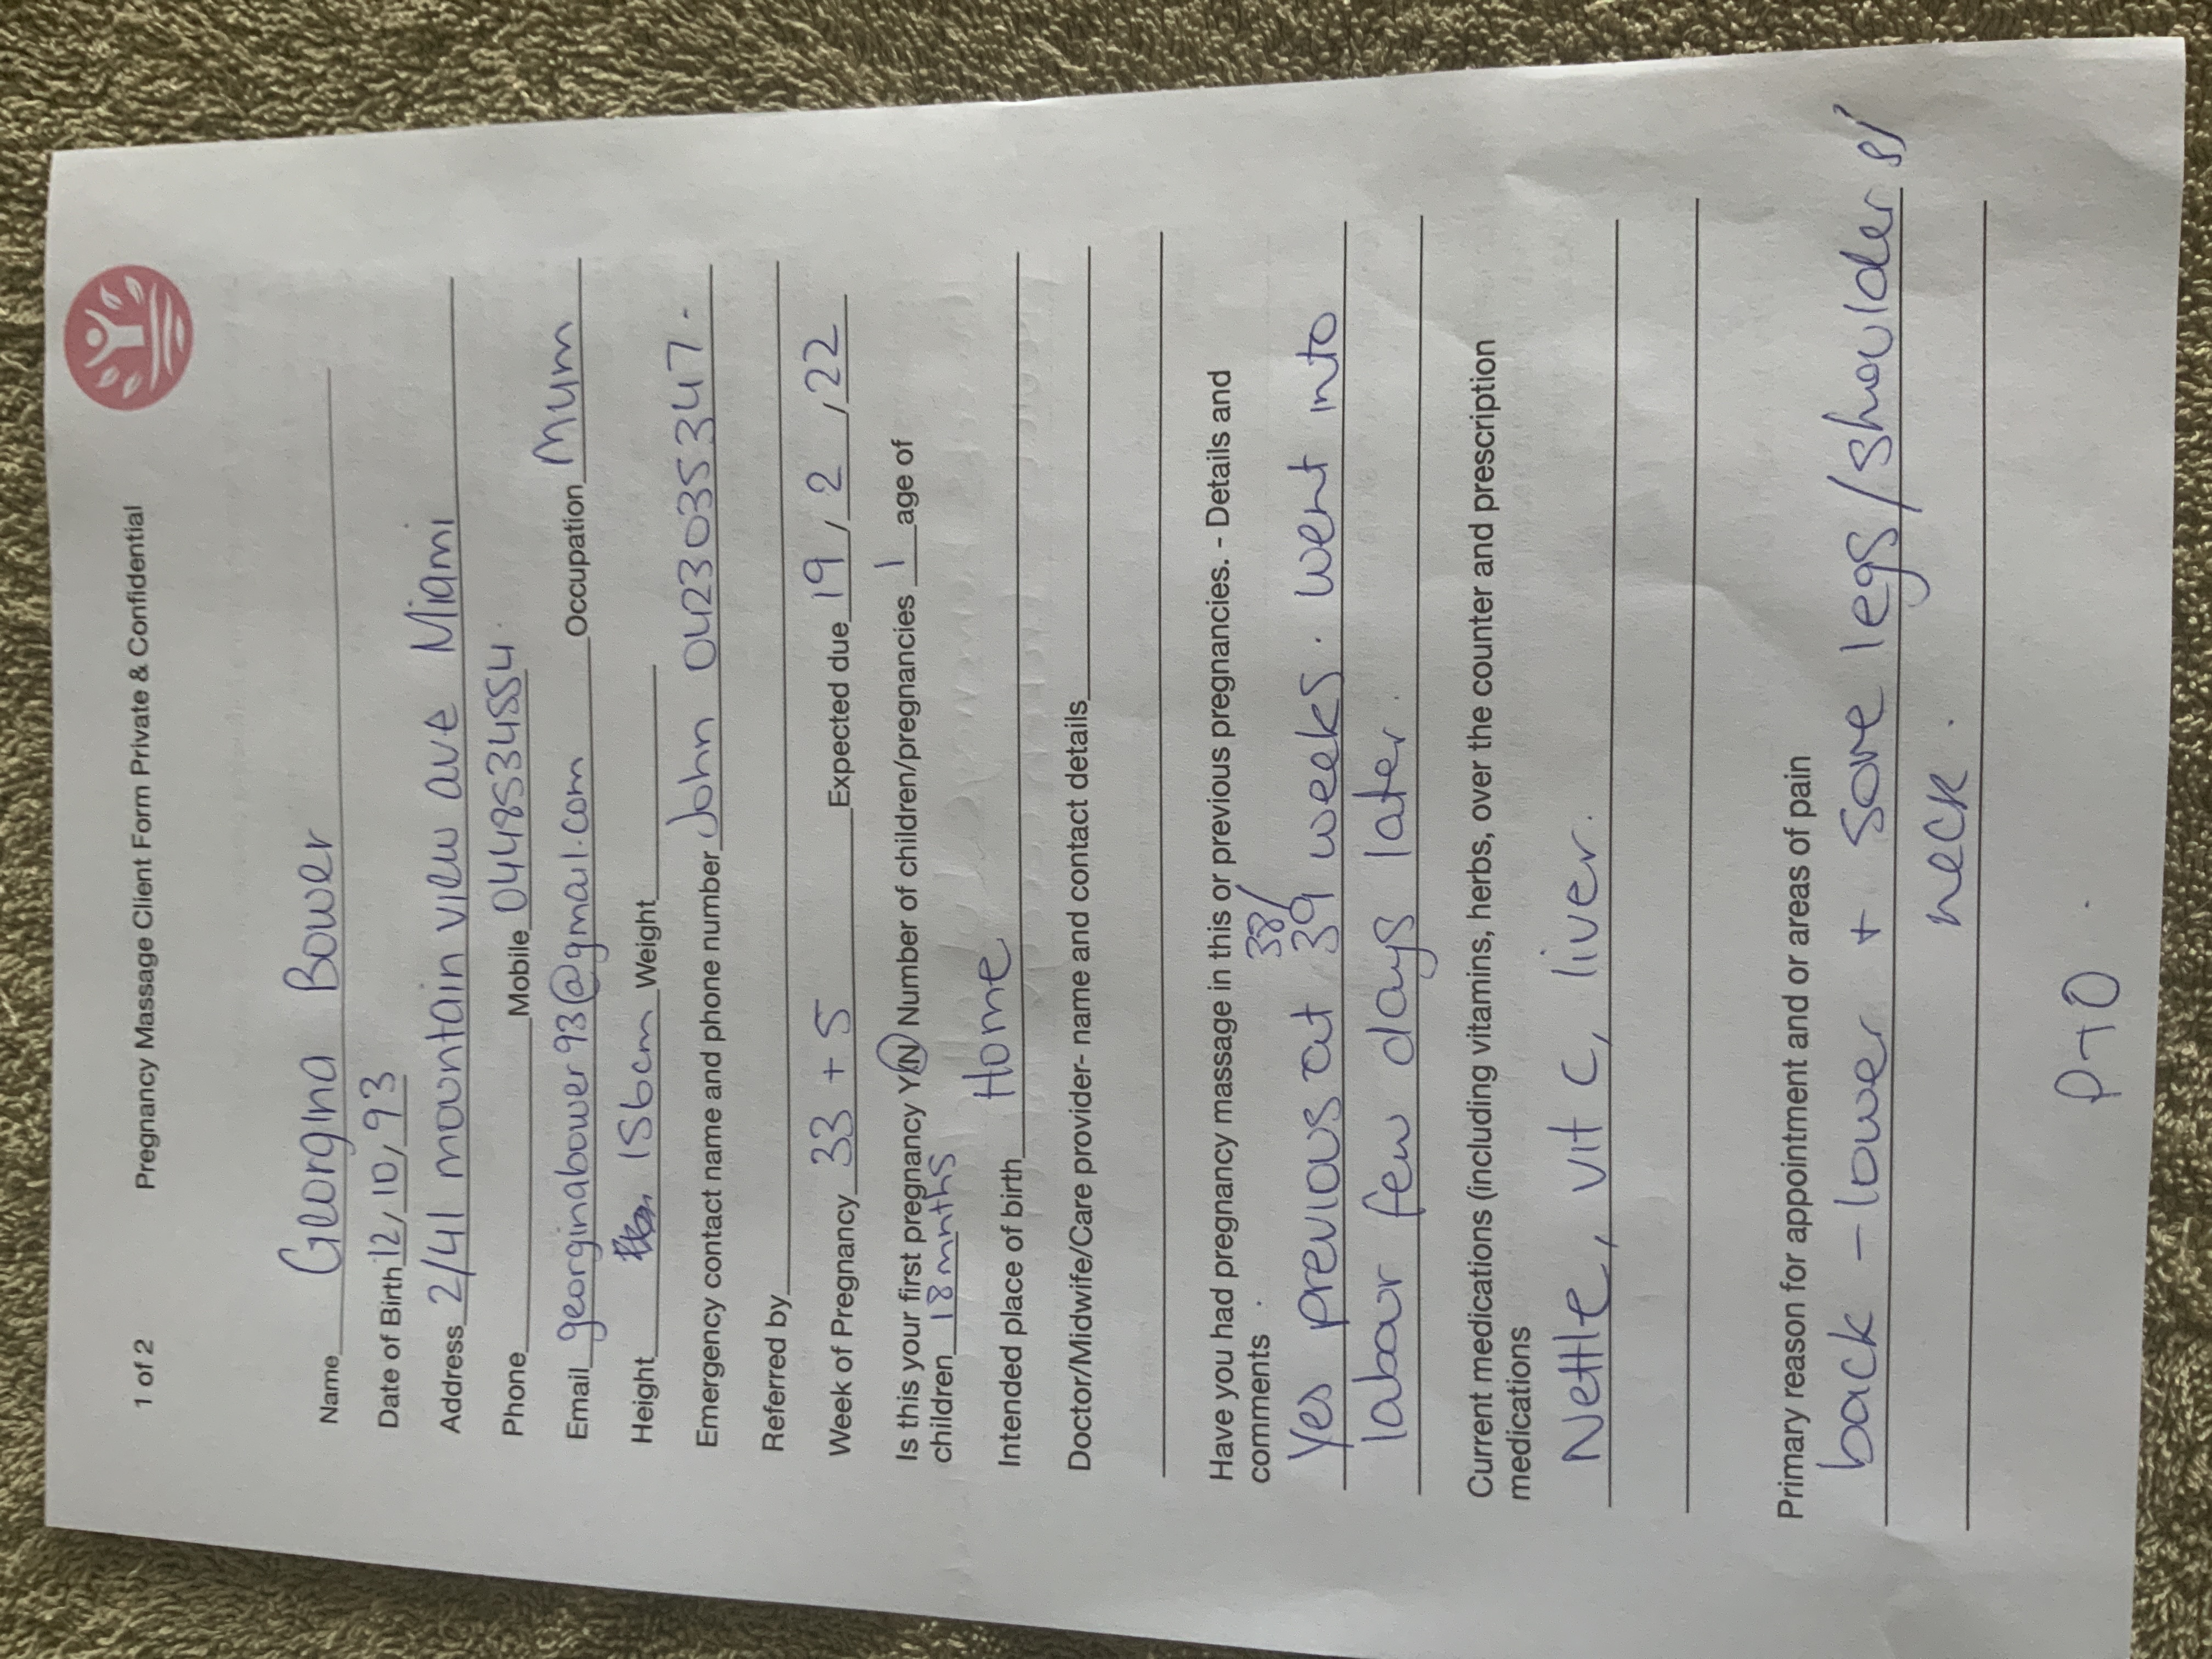 1 of 2 Pregnancy Massage Client Form Private & Confidential
Name Georgina Bower
Date of Birth 12/10/93
Address 2/41 mountain view ave Miami
Phone Mobile 0448534554
Email georginabower93@gmail.com Occupation Mum
Height 156cm Weight
Emergency contact name and phone number John 0423035347.
Referred by
Week of Pregnancy 33 + 5 Expected due 19/2/22
Is this your first pregnancy Y/N Number of children/pregnancies 1 age of
children 18 mnths
Intended place of birth Home
Doctor/Midwife/Care provider- name and contact details
Have you had pregnancy massage in this or previous pregnancies. - Details and
comments
38/
Yes previous at 39 weeks. went into
labour few days later.
Current medications (including vitamins, herbs, over the counter and prescription
medications
Nettle, vit c, liver.
Primary reason for appointment and or areas of pain
back - lower + sore legs/shoulders/
neck.
PTO.